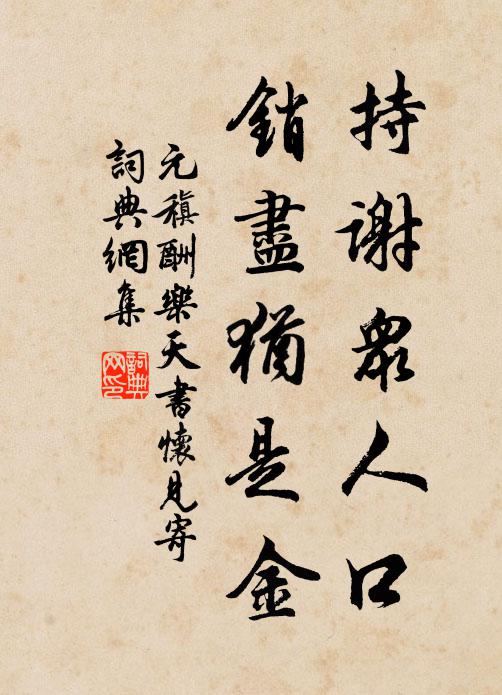 持謝衆人口
銷盡猶是金
元稹酬樂天書懷見寄
詞典網集
詞典
网印